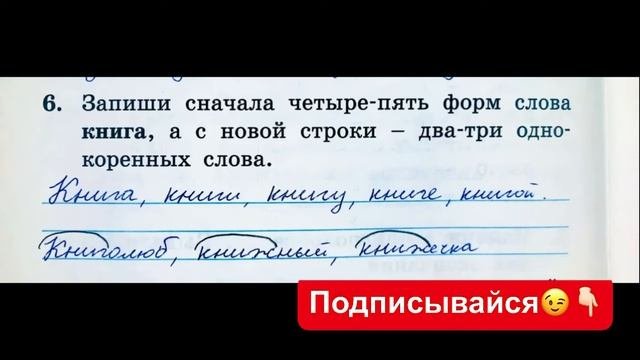 6. Запиши сначала четыре-пять форм слова
книга, а с новой строки – два-три одно-
коренных слова.
Книга, книги, книгу, книге, книгой.
Книголюб, книжный, книжечка
Подписывайся😉👇🏻